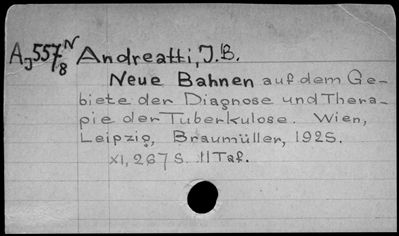 AJ557N/8 Andreatti, J.B.
Neue Bahnen auf dem Ge-
biete der Diagnose und Thera-
pie der Tuberkulose. Wien,
Leipzig, Braumüller, 1925.
XI, 267 S. 11 Taf.